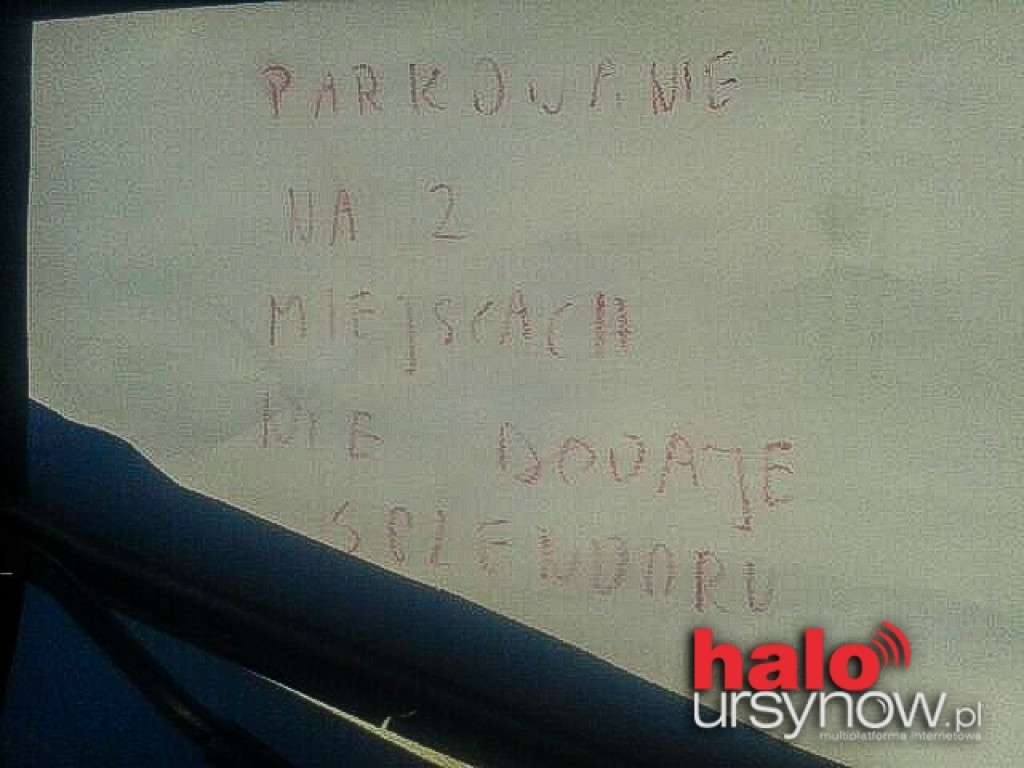 PARKOWANIE
NA 2
MIEJSCACH
NIE DODAJE
SPLENDORU
halo
ursynow.pl
multiplatforma internetowa